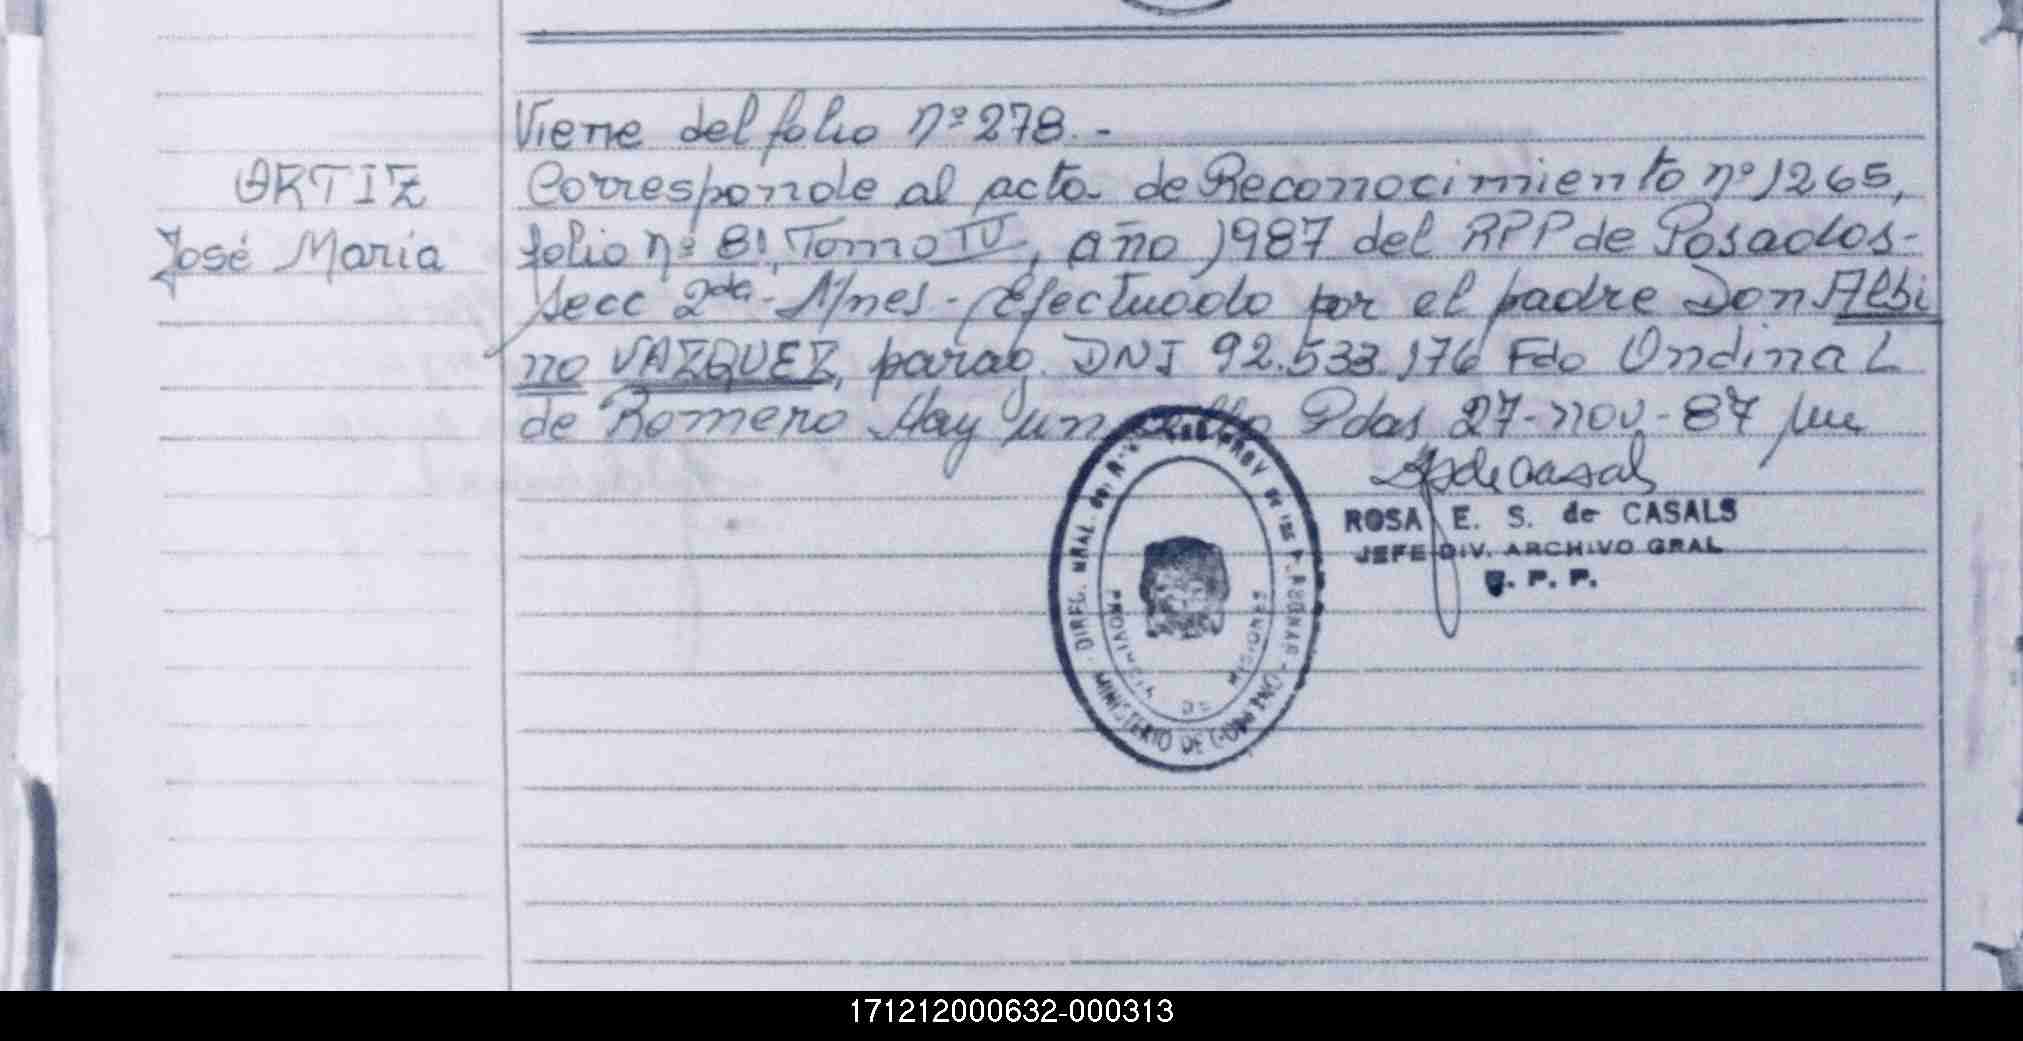 Viene del folio nº 278.-
ORTIZ
José María
Corresponde al acta de Reconocimiento nº 1265,
folio nº 81, Tomo IV, año 1987 del RPP de Posadas-
Secc 2da- Mnes - Efectuado por el padre Don Albi
no VAZQUEZ, parag. DNI 92.533.176 Fdo Ondina L
de Romero Hay un sello Pdas 27-nov-87
ROSA E. S. de CASALS
JEFE DIV. ARCHIVO GRAL
R. P. P.
PROVINCIA DE MISIONES
MINISTERIO DE GOBIERNO
171212000632-000313